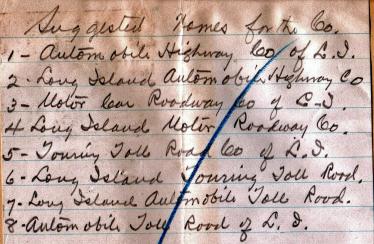 Suggested Names for the Co.
1 - Automobile Highway Co of L.I.
2 - Long Island Automobile Highway Co
3 - Motor Car Roadway Co of L-I.
4 Long Island Motor Roadway Co.
5 - Touring Toll Road Co of L.I.
6 - Long Island Touring Toll Road.
7 - Long Island Automobile Toll Road.
8 - Automobile Toll Road of L.I.